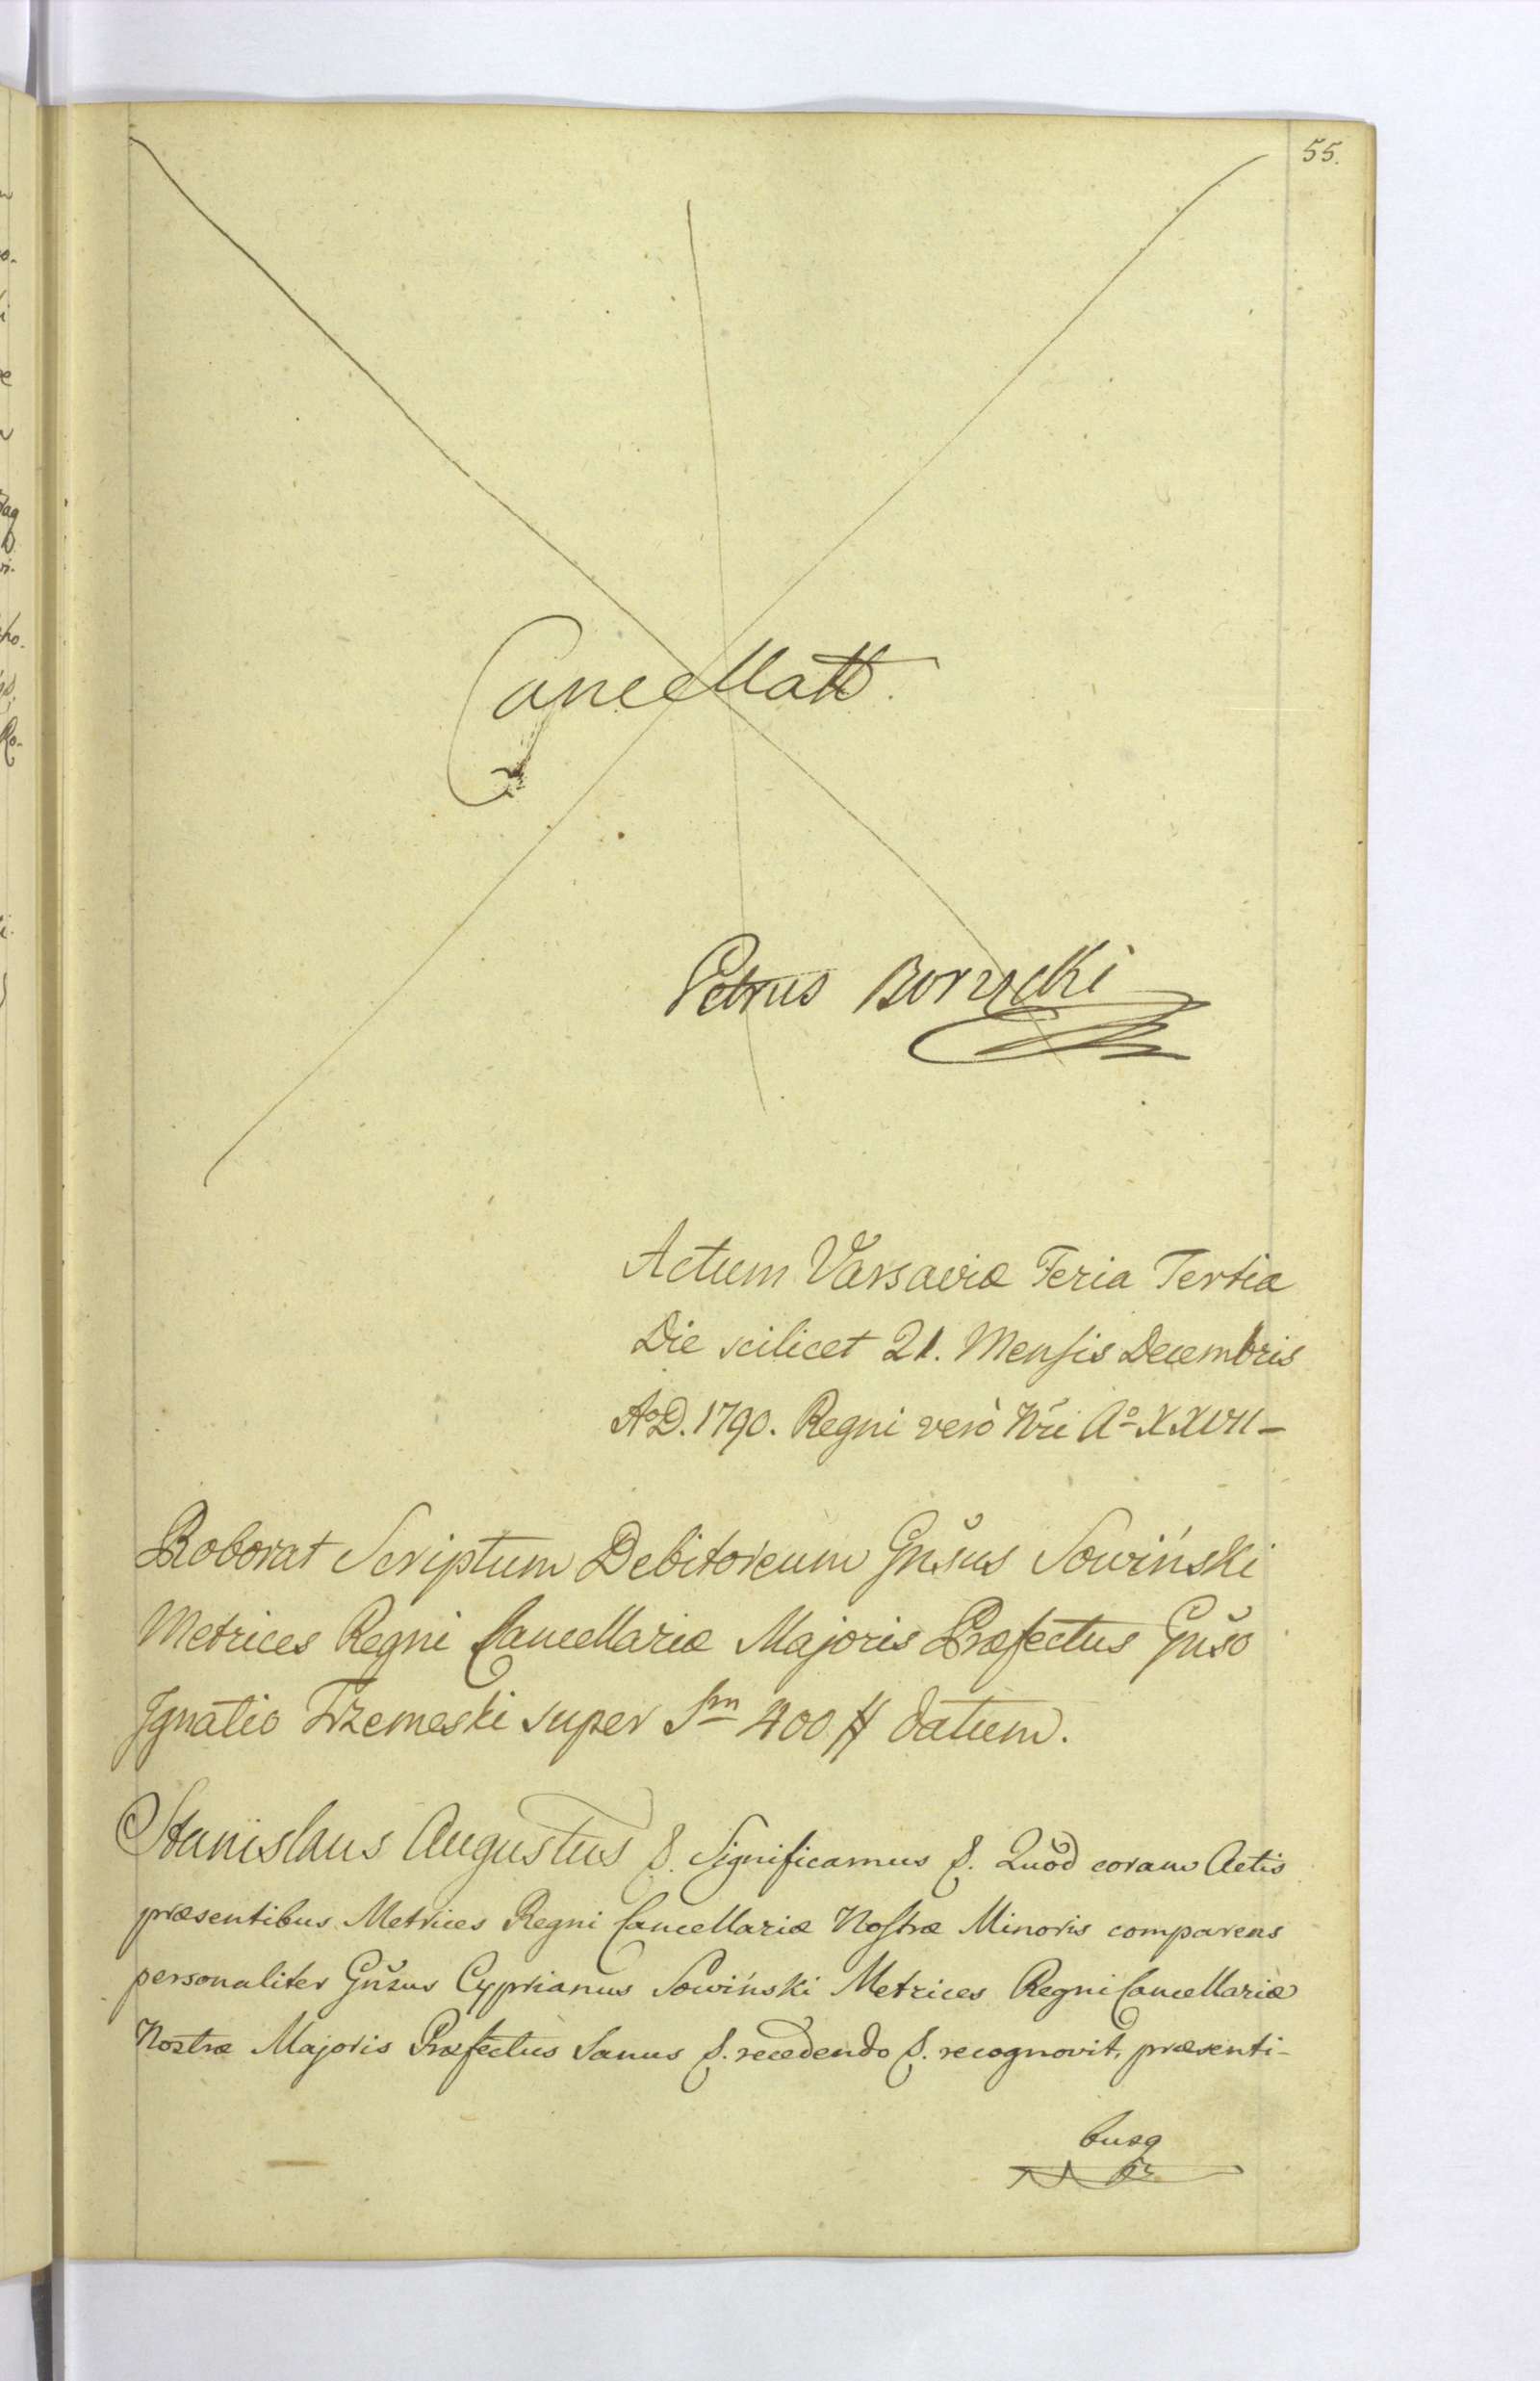 55.
Cancellatt.
Petrus Borzęcki
Actum Varsaviæ Feria Tertia
Die scilicet 21. Mensis Decembris
AoD. 1790. Regni verò Nri Ao XXVII –
Roborat Scriptum Debitoreum Gnŝus Sowiński
Metrices Regni Cancellariæ Majoris Præfectus Gnŝo
Ignatio Trzemeski super Sm 400 # datum.
Stanislaus Augustus &. Significamus &. Quòd coram Actis
præsentibus Metrices Regni Cancellariæ Nostræ Minoris comparens
personaliter Gnŝus Cyprianus Sowiński Metrices Regni Cancellariæ
Nostræ Majoris Præfectus Sanus &. recedendo &. recognovit, præsenti-
busq